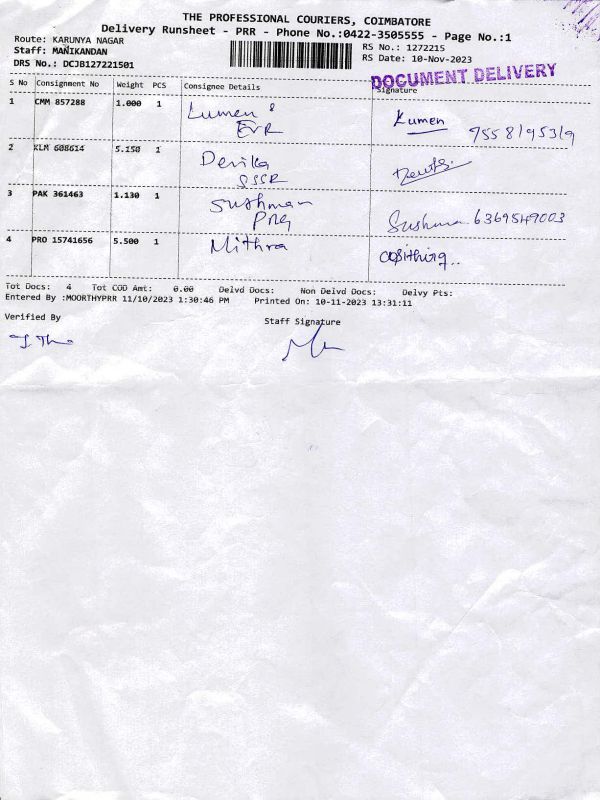 THE PROFESSIONAL COURIERS, COIMBATORE
Delivery Runsheet - PRR - Phone No.:0422-3505555 - Page No.:1
Route: KARUNYA NAGAR RS No.: 1272215
Staff: MANIKANDAN RS Date: 10-Nov-2023
DRS No.: DCJB127221501
DOCUMENT DELIVERY
S No Consignment No Weight PCS Consignee Details Signature
1 CMM 857288 1.000 1 Lumen & Lumen
EVR 9558195319
2 KLM 608614 5.150 1 Devika
SSSR
3 PAK 361463 1.130 1 Sushman Sushma 6369549003
PRG
4 PRO 15741656 5.500 1 Mithra
Tot Docs: 4 Tot COD Amt: 0.00 Delvd Docs: Non Delvd Docs: Delvy Pts:
Entered By :MOORTHYPRR 11/10/2023 1:30:46 PM Printed On: 10-11-2023 13:31:11
Verified By
Staff Signature